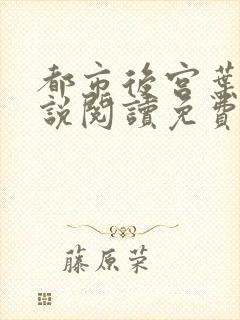 都市後宮葉
說閱讀免費
藤原荣